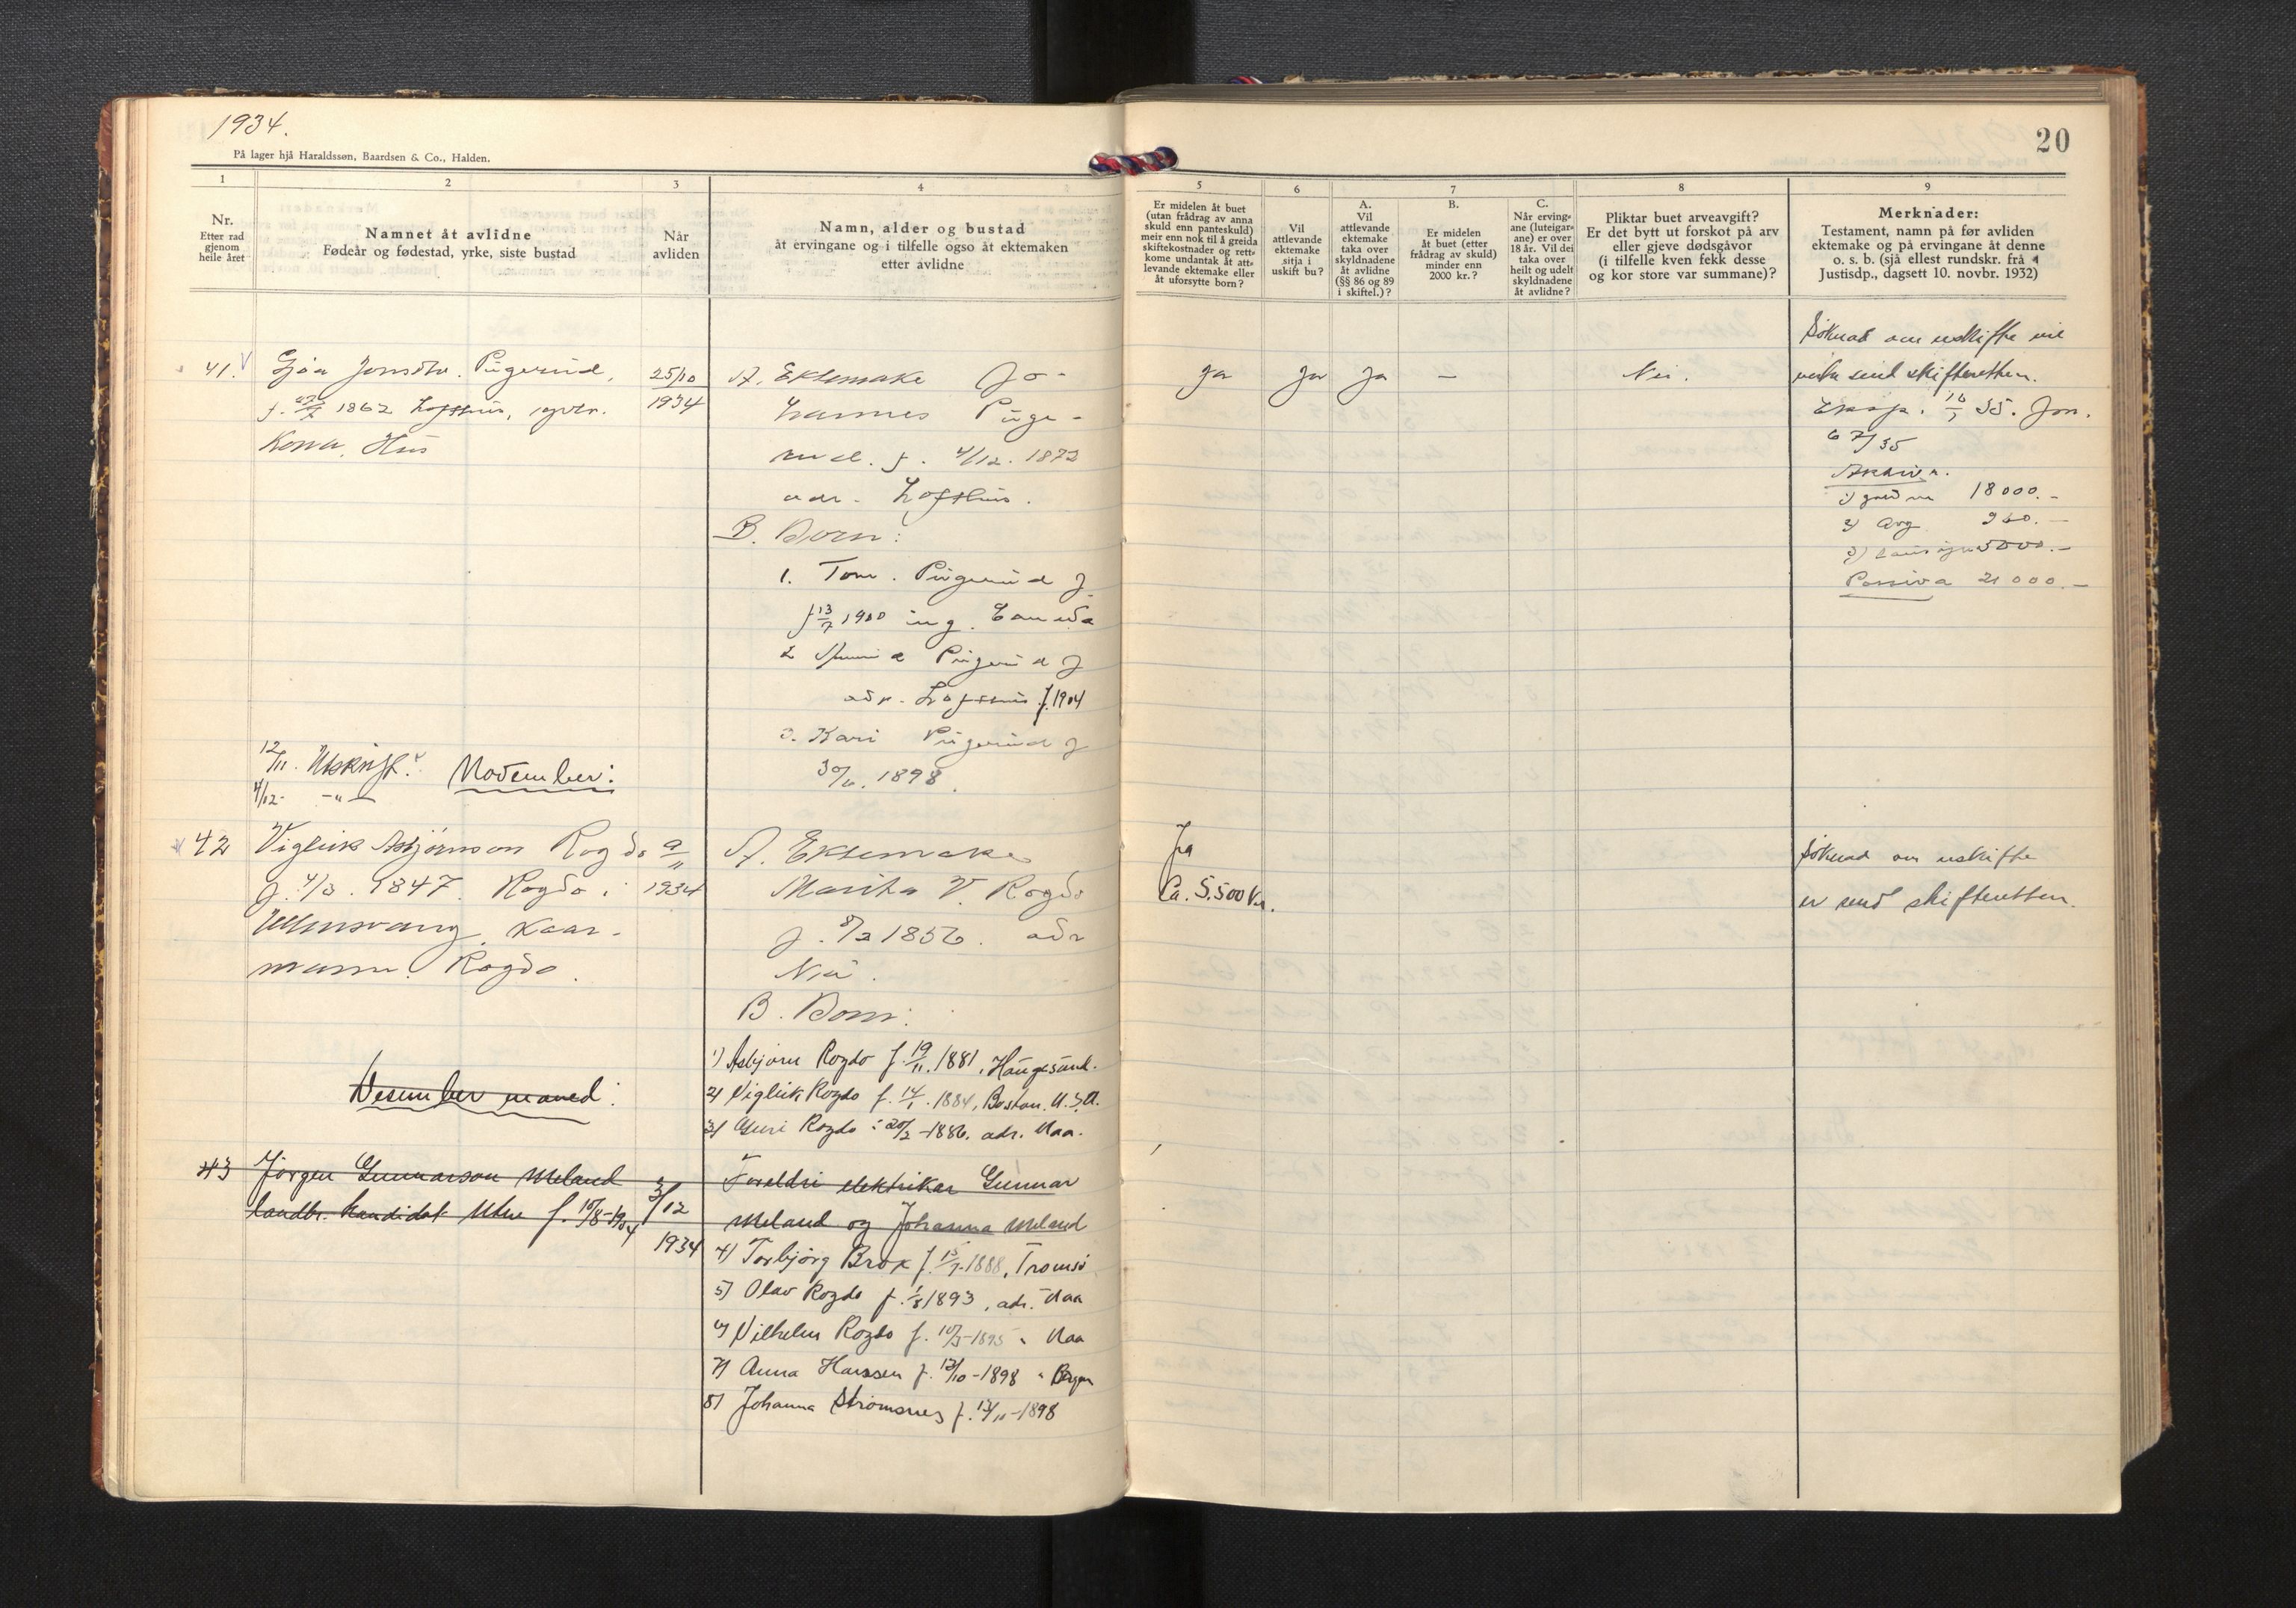 1934.
På lager hjå Haraldssøn, Baardsen & Co., Halden.
20
1
2
3
4
5
6
7
8
9
Nr.
Etter rad
gjenom
heile året
Namnet åt avlidne
Fødeår og fødestad, yrke, siste bustad
Når
avliden
Namn, alder og bustad
åt ervingane og i tilfelle ogso åt ektemaken
etter avlidne
Er midelen åt buet
(utan frådrag av anna
skuld enn panteskuld)
meir enn nok til å greida
skiftekostnader og rett-
kome undantak åt att-
levande ektemake eller
åt uforsytte born?
Vil
attlevande
ektemake
sitja i
uskift bu?
A.
Vil
attlevande
ektemake
taka over
skyldnadene
åt avlidne
(§§ 86 og 89
i skiftel.)?
B.
Er midelen
åt buet (etter
frådrag av skuld)
minder enn
2000 kr.?
C.
Når erving-
ane (luteigar-
ane) er over
18 år. Vil dei
taka over
heilt og udelt
skyldnadene
åt avlidne?
Pliktar buet arveavgift?
Er det bytt ut forskot på arv
eller gjeve dødsgåvor
(i tilfelle kven fekk desse
og kor store var summane)?
Merknader:
Testament, namn på før avliden
ektemake og på ervingane åt denne
o. s. b. (sjå ellest rundskr. frå
Justisdp., dagsett 10. novbr. 1932)
41.
25/10
1934
1862 Lofthus,
Kona. Hus
A. Ektemake Jo-
hannes
f. 4/12. 1872
adr. Lofthus.
B. Born:
1. Tom.
f 13/7 1900 ing. Canada
2
adr. Lofthus f. 1904
3. Kari
1898
Ja
Ja
Ja
—
Nei.
Søknad om uskifte vil
verta send skifteretten.
35.
6 7/35
Aktiva.
1) 18000.-
2)
3) 5000.-
Passiva 21000.-
12/11. Utskrift.
4/12- -"-
November:
42
Vigleik Asbjørnson Rogdo
9/11
1934
f. 4/3. 1847. Rogdo i
Ullensvang. Kaar-
mann. Rogdo.
A. Ektemake
Marita V. Rogdo
f. 8/2 1856. adr
B. Born:
1) Asbjørn Rogdo f. 19/11. 1881, Haugesund.
2) Vigleik Rogdo f. 14/1. 1884, Boston. U.S.A.
3) Guri Rogdo : 20/2 -1886, adr. Naa.
Ja
Ca. 5.500 Kr.
Søknad om uskifte
er send skifteretten.
Desember maned:
43
Jørgen Gunnarson Meland
landbr. kandidat Utne f. 15/8-1904
3/12
1934
Foreldri elektrikar Gunnar
Meland og Johanna Meland
4) Torbjørg Brox f. 15/7-1888, Tromsø
5) Olav Rogdo f. 1/8 1893, adr. Naa
6) Vilhelm Rogdo f. 10/3-1895 " Naa
7) Anna Hanssen f. 12/10-1898 " Bergen
8) Johanna Strømsnes f. 12/11-1898